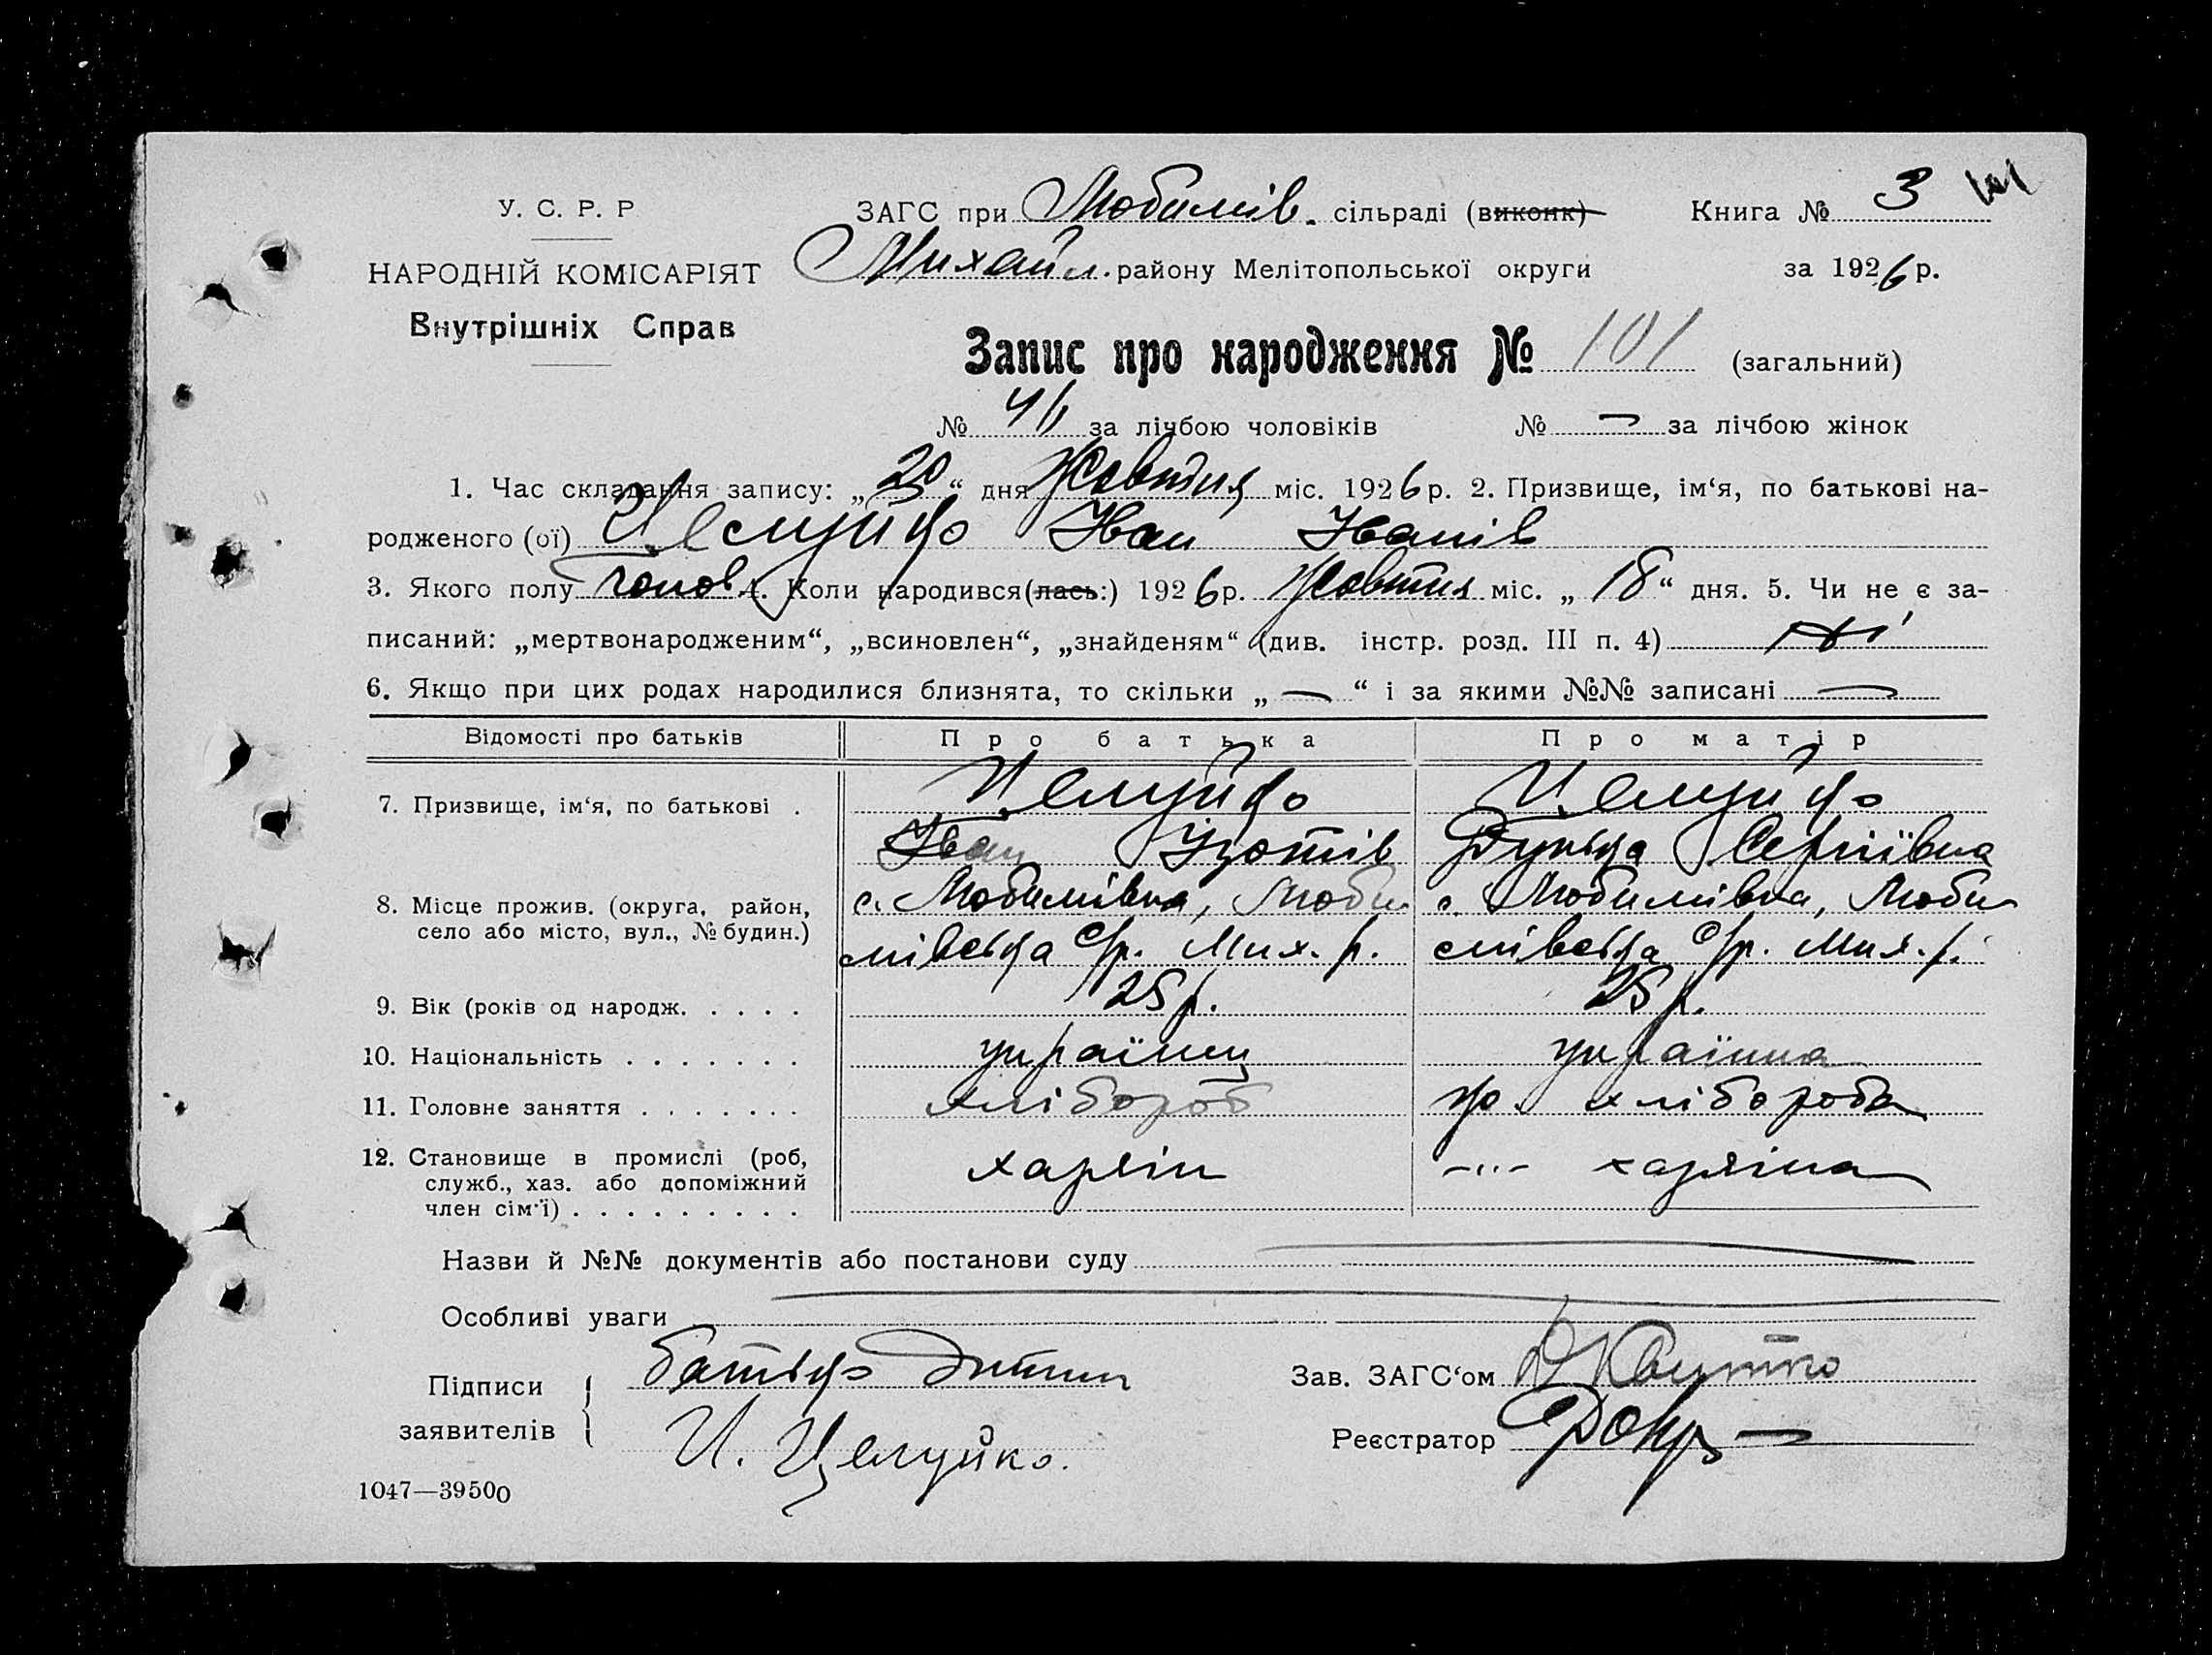 У. С. Р. Р
НАРОДНІЙ КОМІСАРІЯТ
Внутрішніх Справ
ЗАГС при Любимів. сільраді (виконк) Книга № 3
Михайл. району Мелітопольської округи за 1926 р.
Запис про народження № 101 (загальний)
№ за лічбою чоловіків № — за лічбою жінок
1. Час складання запису: „20“ дня Жовтня міс. 1926 р. 2. Призвище, ім‘я, по батькові на-
родженого (ої) Целуйко Іван Іванів
3. Якого полу чолов. 4. Коли народився(лась:) 1926 р. Жовтня міс. „18“ дня. 5. Чи не є за-
писаний: „мертвонародженим“, „всиновлен“, „знайденям“ (див. інстр. розд. III п. 4) ні
6. Якщо при цих родах народилися близнята, то скільки „ — “ і за якими №№ записані —
Відомості про батьків Про батька Про матір
7. Призвище, ім‘я, по батькові . Целуйко Целуйко
Іван Ізотів Сергіївна
8. Місце прожив. (округа, район, с. Любимівка, Люби- с. Любимівка, Люби-
село або місто, вул., № будин.) мівська с/р. Мих. р. мівська с/р. Мих. р.
9. Вік (років од народж. . . . . 25 р. 25 р.
10. Національність . . . . . . . українец українка
11. Головне заняття . . . . . . . хлібороб хлібороба
12. Становище в промислі (роб, хазяїн -"- хазяїна
служб., хаз. або допоміжний
член сім‘ї) . . . . . . . . .
Назви й №№ документів або постанови суду
Особливі уваги
Підписи батько дитини Зав. ЗАГС‘ом
заявителів И. Целуйко. Реєстратор
1047—39500